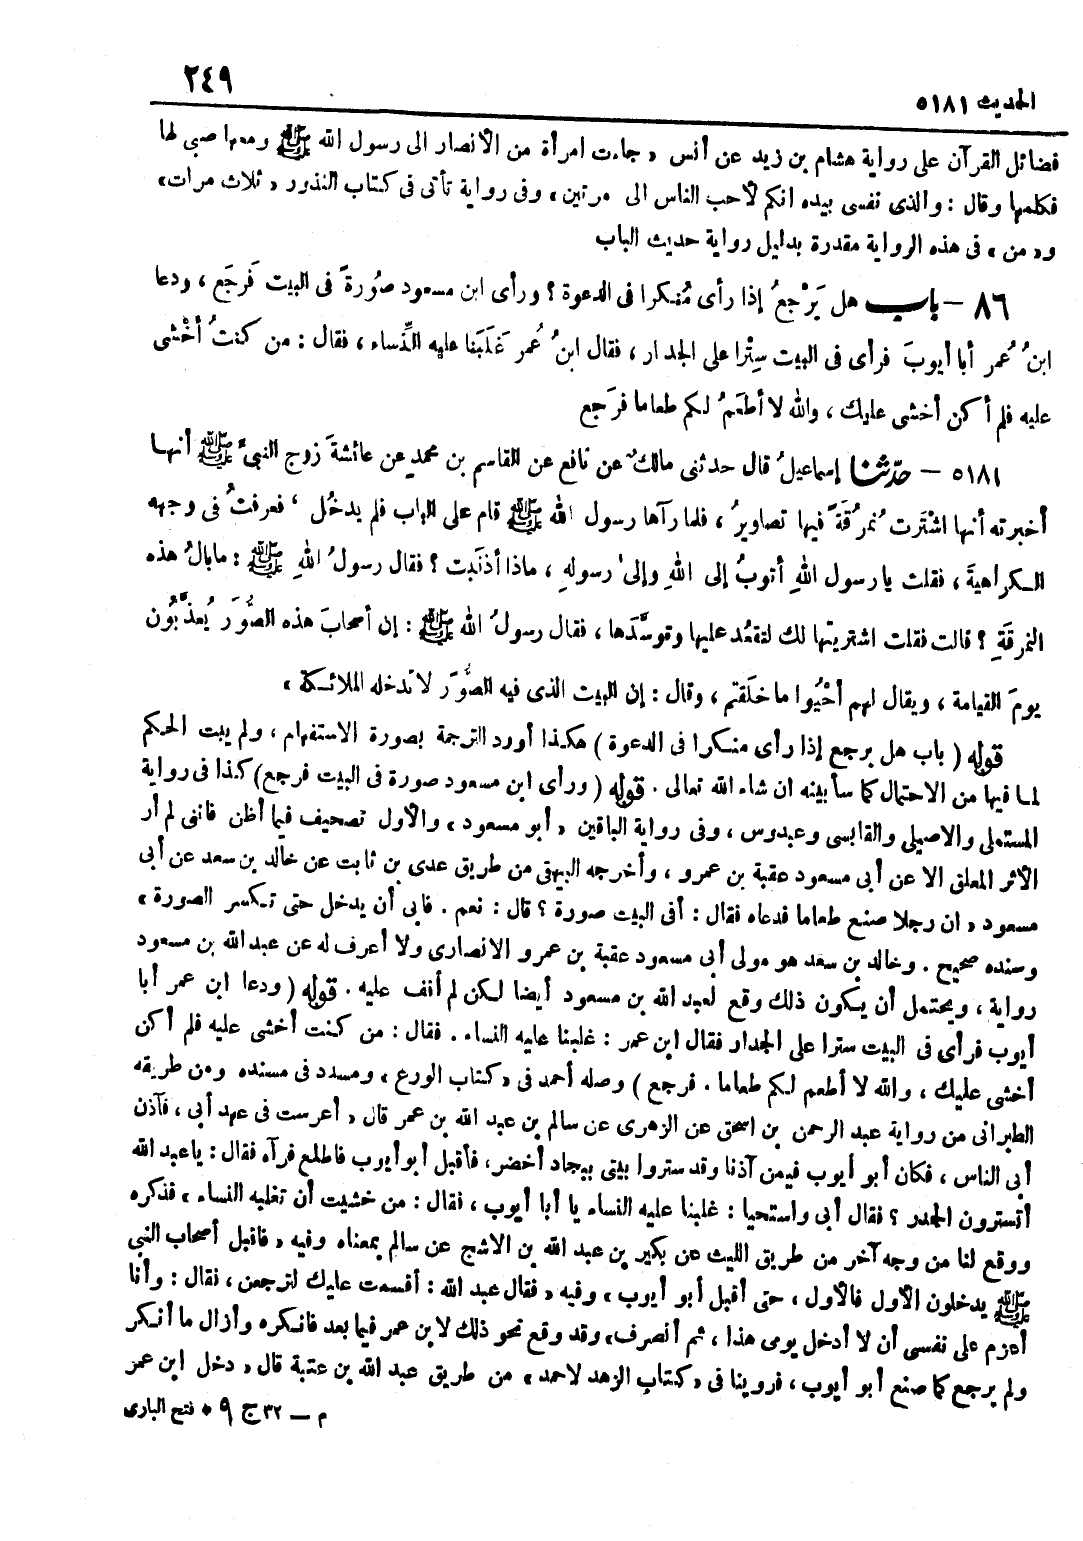 الحديث ٥١٨١ ٢٤٩
فضائل القرآن على رواية هشام بن زيد عن أنس « جاءت امرأة من الأنصار الى رسول الله ﷺ ومعها صبى لها
فكلمها وقال : والذى نفسى بيده انكم لأحب الناس الى مرتين » وفى رواية تأتى فى كتاب النذور « ثلاث مرات »
و « من » فى هذه الرواية مقدرة بدليل رواية حديث الباب
٨٦ – باب هل يَرْجعُ إذا رأى مُنكرا فى الدعوة ؟ ورأى ابن مسعود صُورةً فى البيت فَرجَع ، ودعا
ابنُ عُمر أبا أيوبَ فرأى فى البيت سِتْرا على الجدار ، فقال ابنُ عُمر غَلَبَنا عليه النِّساء ، فقال : من كنتُ أخْشى
عليه فلم أكن أخشى عليك ، والله لا أطعَمُ لكم طعاما فرَجع
٥١٨١ – حدّثنا إسماعيلُ قال حدثنى مالكٌ عن نافع عن القاسم بن محمدٍ عن عائشةَ زوج النبىِّ ﷺ أنها
أخبرته أنها اشْتَرت نُمرُقَةً فيها تصاويرُ ، فلما رآها رسول الله ﷺ قام على الباب فلم يدخُل ، فعرفتُ فى وجهه
الكراهيةَ ، فقلت يا رسول اللهِ أتوبُ إلى اللهِ وإلى رسولهِ ، ماذا أذنَبت ؟ فقال رسولُ اللهِ ﷺ : ما بالُ هذه
النمرقَةِ ؟ قالت فقلت اشتريتها لك لتقعُد عليها وتوسَّدَها ، فقال رسولُ الله ﷺ : إن أصحابَ هذه الصُّوَر يُعذَّبُون
يومَ القيامة ، ويقال لهم أحْيُوا ما خلَقتم ، وقال : إن البيت الذى فيه الصُّوَر لا تدخله الملائكة »
قوله ( باب هل يرجع إذا رأى منكرا فى الدعوة ) هكذا أورد الترجمة بصورة الاستفهام ، ولم يبت الحكم
لما فيها من الاحتمال كما سأبينه ان شاء الله تعالى . قوله ( ورأى ابن مسعود صورة فى البيت فرجع ) كذا فى رواية
المستملى والاصيلى والقابسى وعبدوس ، وفى رواية الباقين « أبو مسعود » والأول تصحيف فيما أظن فاننى لم أر
الأثر المعلق الا عن أبى مسعود عقبة بن عمرو ، وأخرجه البيهقى من طريق عدى بن ثابت عن خالد بن سعد عن أبى
مسعود « ان رجلا صنع طعاما فدعاه فقال : أفى البيت صورة ؟ قال : نعم . فابى أن يدخل حتى تكسر الصورة »
وسنده صحيح . وخالد بن سعد هو مولى أبى مسعود عقبة بن عمرو الانصارى ولا أعرف له عن عبد الله بن مسعود
رواية ، ويحتمل أن يكون ذلك وقع لعبد الله بن مسعود أيضا لكن لم أقف عليه . قوله ( ودعا ابن عمر أبا
أيوب فرأى فى البيت سترا على الجدار فقال ابن عمر : غلبنا عليه النساء . فقال : من كنت أخشى عليه فلم أكن
أخشى عليك ، والله لا أطعم لكم طعاما . فرجع ) وصله أحمد فى « كتاب الورع » ومسدد فى مسنده ومن طريقه
الطبرانى من رواية عبد الرحمن بن اسحق عن الزهرى عن سالم بن عبد الله بن عمر قال « أعرست فى عهد أبى ، فآذن
أبى الناس ، فكان أبو أيوب فيمن آذنا وقد ستروا بيتى ببجاد أخضر ، فأقبل أبو أيوب فاطلع فرآه فقال : يا عبد الله
أتسترون الجدر ؟ فقال أبى واستحيا : غلبنا عليه النساء يا أبا أيوب ، فقال : من خشيت أن تغلبه النساء » فذكره
ووقع لنا من وجه آخر من طريق الليث عن بكير بن عبد الله بن الاشج عن سالم بمعناه وفيه « فاقبل أصحاب النبى
ﷺ يدخلون الأول فالأول ، حتى أقبل أبو أيوب » وفيه « فقال عبد الله : أقسمت عليك لترجعن ، فقال : وأنا
أعزم على نفسى أن لا أدخل يومى هذا ، ثم أنصرف » وقد وقع نحو ذلك لابن عمر فيما بعد فانكره وأزال ما أنكر
ولم يرجع كما صنع أبو أيوب ، فروينا فى « كتاب الزهد لاحمد » من طريق عبد الله بن عتبة قال « دخل ابن عمر
م – ٣٢ ج ٩ • فتح البارى